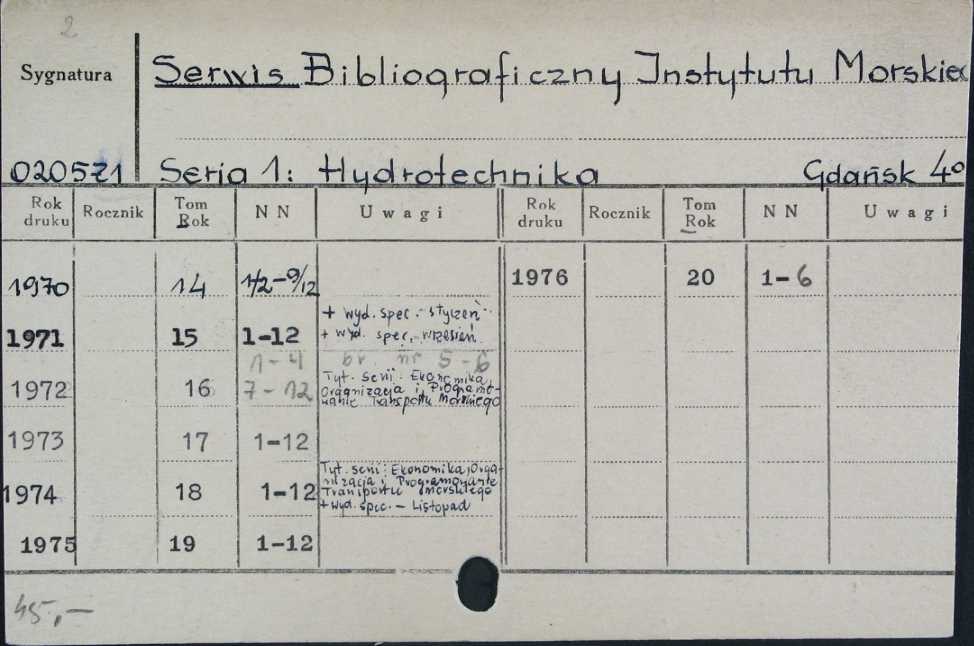 2
Sygnatura
Serwis Bibliograficzny Instytutu Morskieg
020571 Seria 1: Hydrotechnika Gdańsk 4°
Rok druku Rocznik Tom Rok NN Uwagi Rok druku Rocznik Tom Rok NN Uwagi
1970 14 1/2-9/12 1976 20 1-6
1971 15 1-12 + wyd. spec. - styczeń
+ wyd. spec. - wrzesień
1-4 br. nr 5-6
1972 16 7-12 Tyt. serii: Ekonomika,
Organizacja i Programo-
wanie Transportu Morskiego
1973 17 1-12
1974 18 1-12 Tyt. serii: Ekonomika, Orga-
nizacja i Programowanie
Transportu Morskiego
+ wyd. spec. - Listopad
1975 19 1-12
45,-